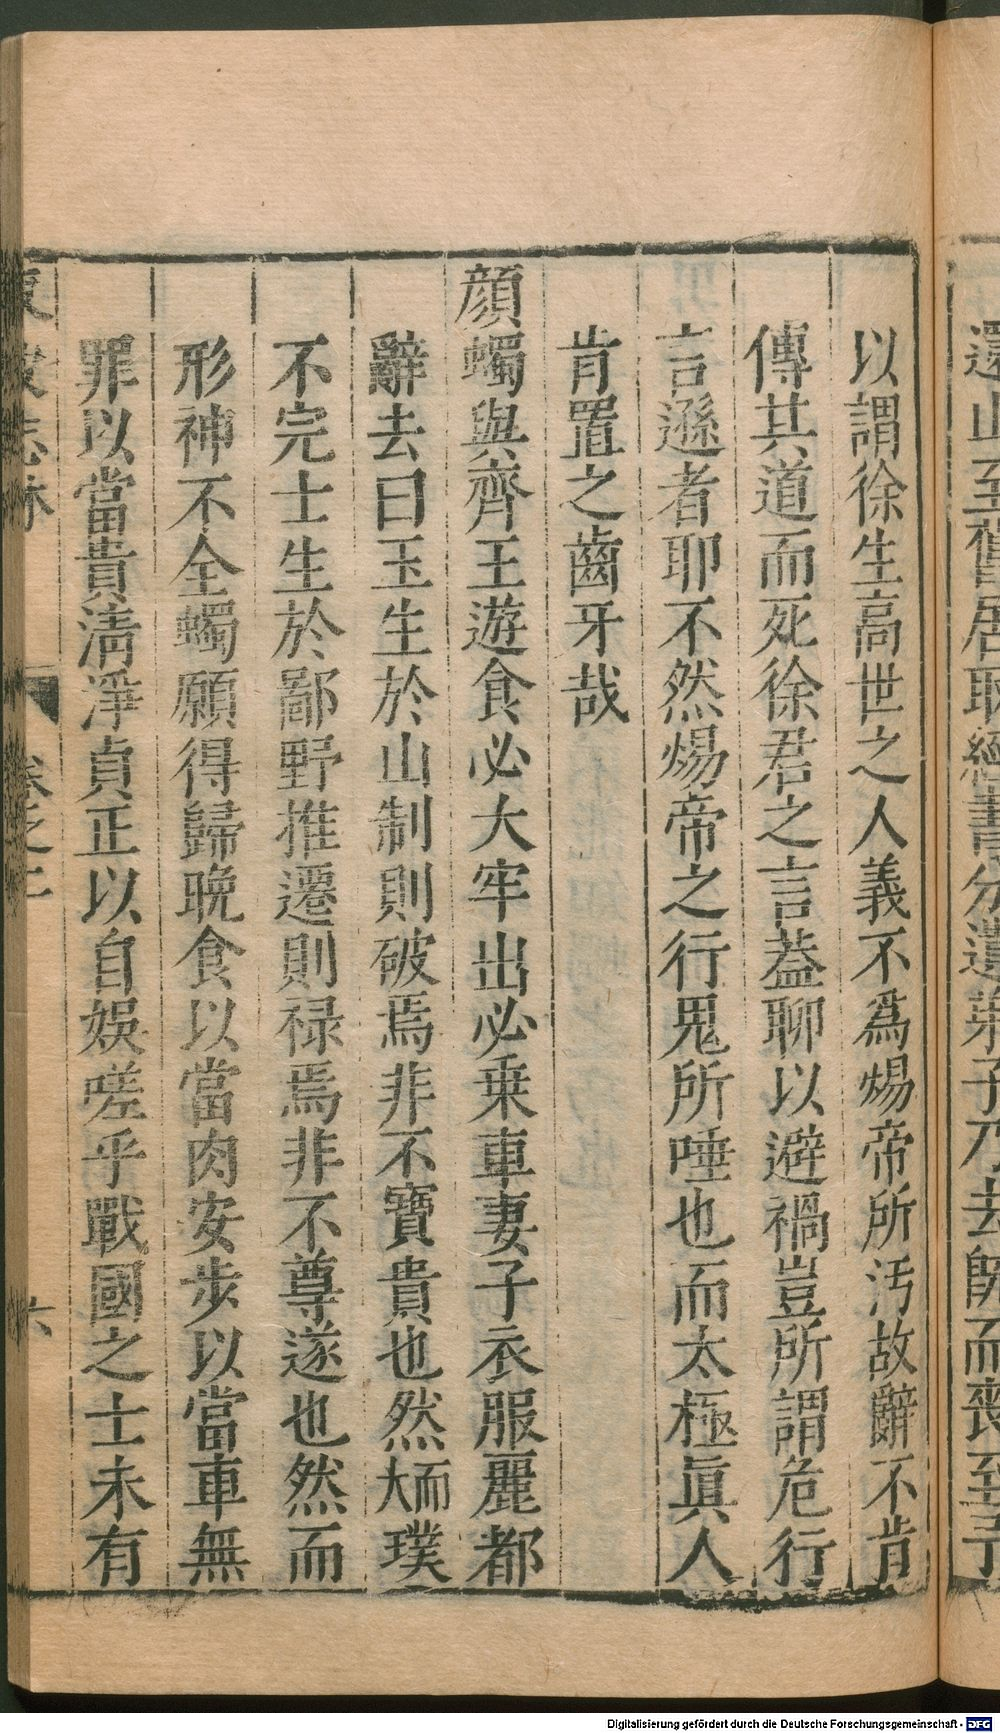 還山至舊居取經書分遺弟子乃去旣而喪至予
以謂徐生高世之人義不爲煬帝所汚故辭不肯
傳其道而死徐君之言葢聊以避禍豈所謂危行
言遜者耶不然煬帝之行鬼所唾也而太極眞人
肯置之齒牙哉
顔蠋與齊王遊食必大牢出必乗車妻子衣服麗都
辭去曰玉生於山制則破焉非不寶貴也然而大璞
不完士生於鄙野推遷則禄焉非不尊遂也然而
形神不全蠋願得歸晚食以當肉安步以當車無
罪以當貴淸淨貞正以自娛嗟乎戰國之士未有
東坡志林 卷之二 六
Digitalisierung gefördert durch die Deutsche Forschungsgemeinschaft - DFG